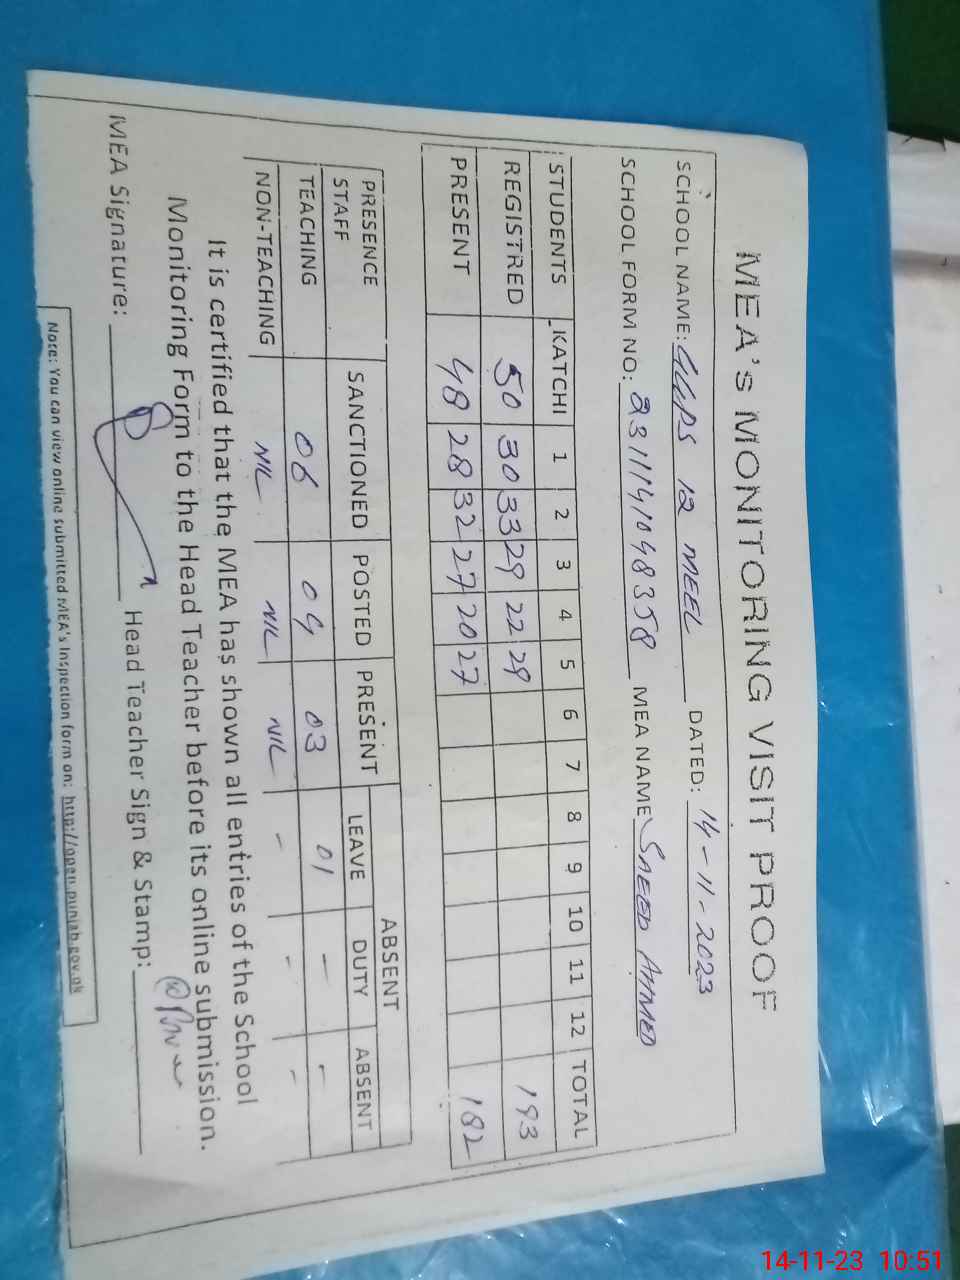 MEA's MONITORING VISIT PROOF
SCHOOL NAME: GGPS 12 MEEL DATED: 14-11-2023
SCHOOL FORM NO: 2311141048358 MEA NAME SAEED AHMED
STUDENTS KATCHI 1 2 3 4 5 6 7 8 9 10 11 12 TOTAL
REGISTRED 50 30 33 29 22 29 193
PRESENT 48 28 32 27 20 27 182
PRESENCE ABSENT
STAFF SANCTIONED POSTED PRESENT LEAVE DUTY ABSENT
TEACHING 06 04 03 01 - -
NON-TEACHING NIL NIL NIL - - -
It is certified that the MEA has shown all entries of the School
Monitoring Form to the Head Teacher before its online submission.
MEA Signature: Head Teacher Sign & Stamp:
Note: You can view online submitted MEA's Inspection form on: http://open.punjab.gov.pk
14-11-23 10:51